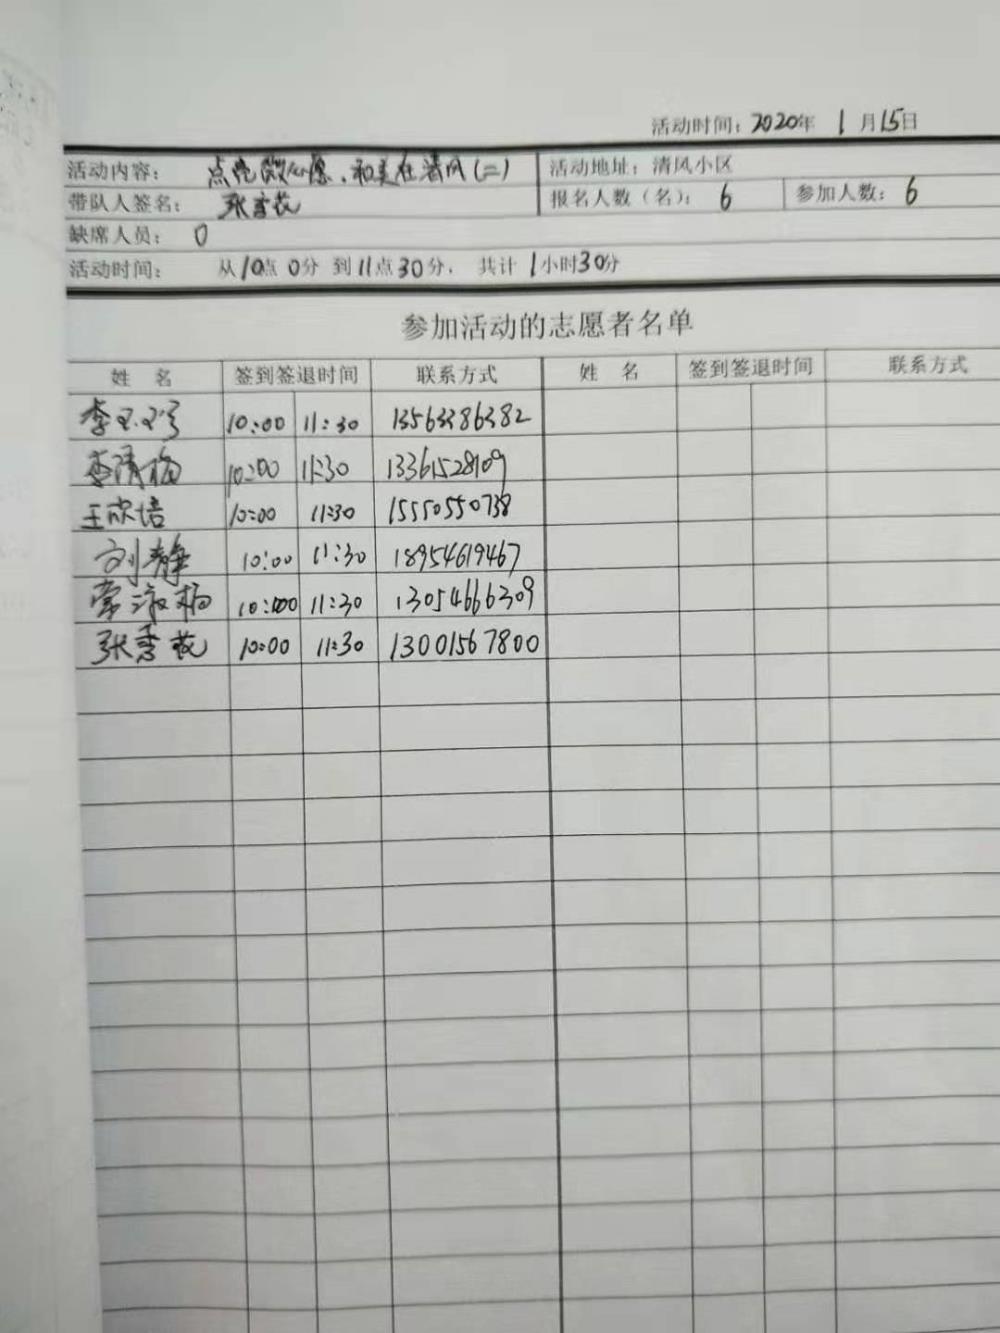 活动时间：2020年 1月15日
活动内容： 点亮微心愿、和美在清风(二) 活动地址：清风小区
带队人签名： 张秀花 报名人数（名）： 6 参加人数： 6
缺席人员： 0
活动时间： 从10点0分 到11点30分， 共计1小时30分
参加活动的志愿者名单
姓 名 签到签退时间 联系方式 姓 名 签到签退时间 联系方式
李 10:00 11:30 13563386382
李清梅 10:00 11:30 13361528109
王欣培 10:00 11:30 15550550738
刘静 10:00 11:30 18954619467
常淑梅 10:00 11:30 13054666309
张秀花 10:00 11:30 13001567800